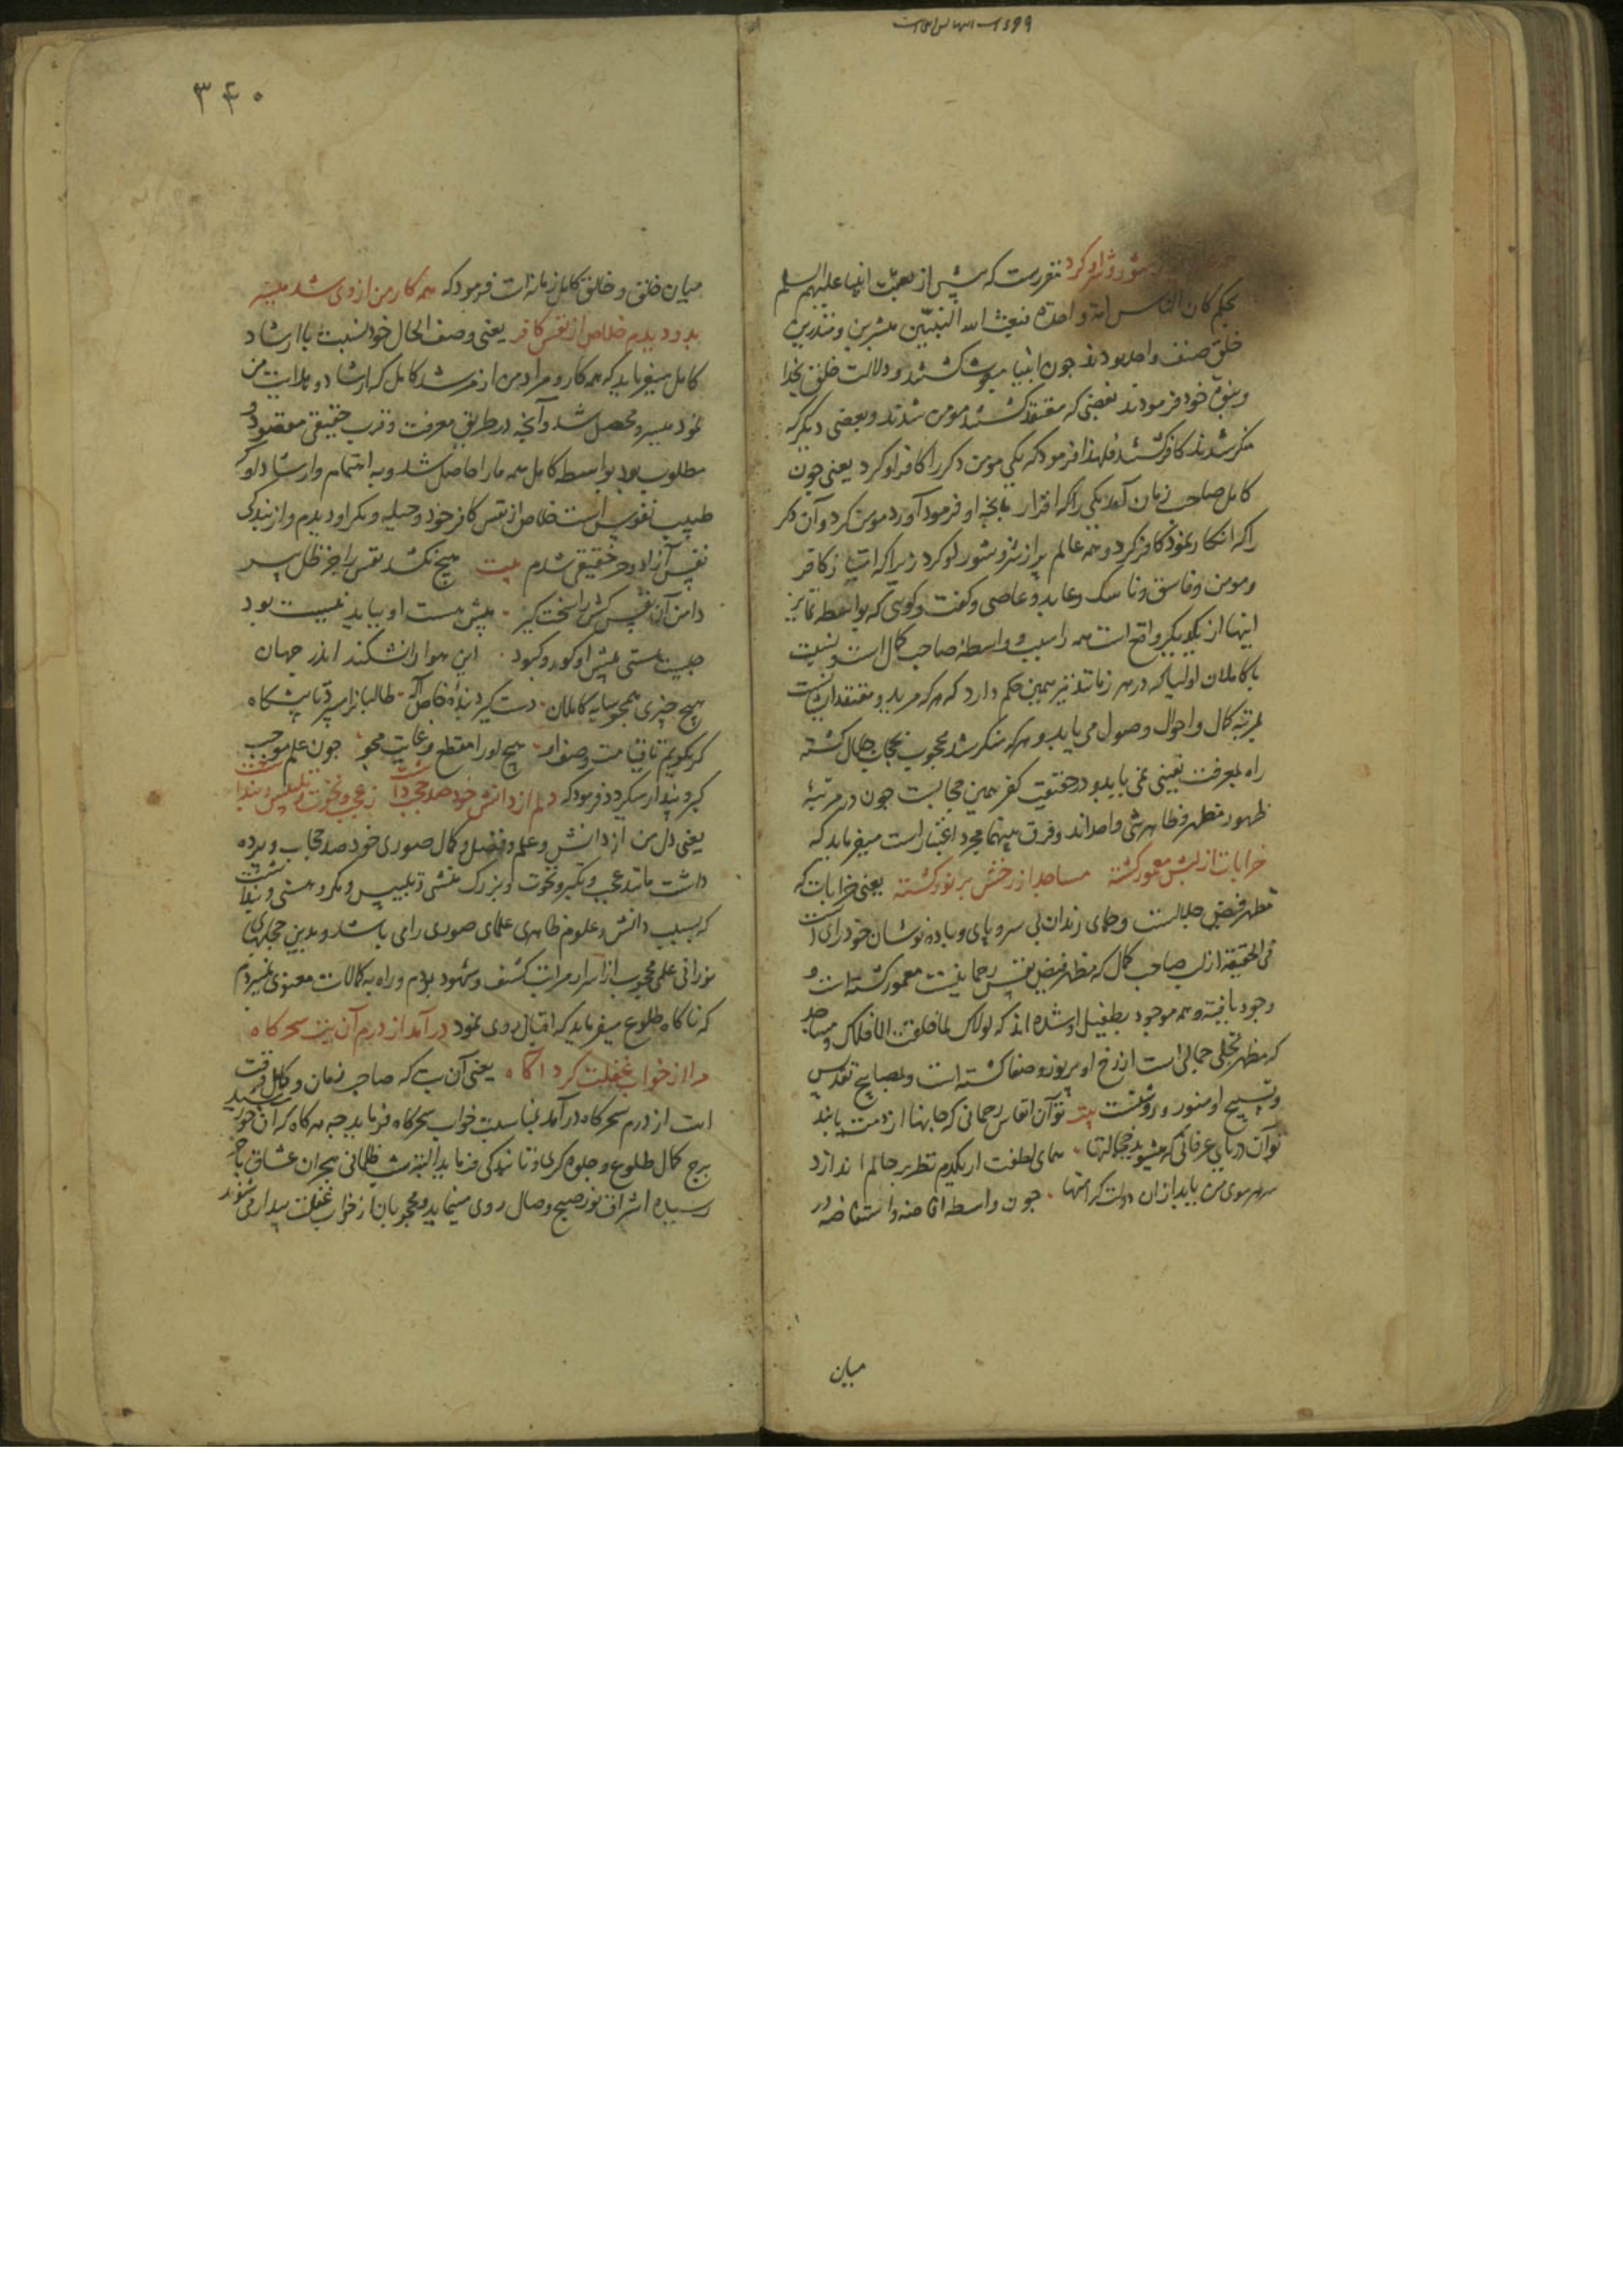 شور و شر او کرد مقررست که پیش از بعثت انبیا علیهم السلم
بحکم کان الناس امة واحدة فبعث الله النبیین مبشرین و منذرین
خلق صنف واحد بودند جون انبیا مبعوث کشتند و دلالت خلق بخدا
و بنبوت خود فرمودند بعضی که معتقد کشتند مومن شدند و بعضی دیگر که
منکر شدند کافر کشتند فلهذا فرمود که یکی مومن دکر را کافر او کرد یعنی جون
کامل صاحب زمان آمد یکی را که اقرار بانجه او فرمود آورد مومن کرد و آن دکر
را که انکار نمود کافر کرد و همه عالم پر از شر و شور او کرد زیرا که امتیاز کافر
و مومن و فاسق و ناسک و عابد و عاصی و کفت و کوئی که بواسطه تمایز
اینها از یکدیکر واقع است همه را سبب و واسطه صاحب کمال است و نسبت
با کاملان اولیا که در هر زمانند نیز همین حکم دارد که هر که مرید و معتقد ایشانست
بمرتبه کمال و احوال و وصول می یابد و هر که منکر شد محجوب بحجاب جلال کشته
راه بمعرفت یقینی نمی یابد و در حقیقت کفر همین حجابست جون در مرتبهٔ
ظهور مظهر و ظاهر شی واحداند و فرق بینهما مجرد اعتباراست میفرماید که
خرابات از لبش معمور کشته مساجد از رخش پر نور کشته یعنی خرابات که
مظهر فیض جلالست و جای رندان بی سر و پای و باده نوشان خودرای است
فی الحقیقه از لب صاحب کمال که مظهر فیض نفس رحمانیست معمور کشته است و
وجود یافته و همه موجود بطفیل او شده اند که لولاک لما خلقت الافلاک و مساجد
که مظهر تجلی جمالی است از رخ او پر نور و صفا کشته است و بمصابیح تقدیس
و تسبیح او منور و روشنست بیت تو آن انفاس رحمانی که جانها از دمت یابند
تو آن دریای عرفانی که میشوید خجالتها همای لطفت ار یکدم نظر بر حالم اندازد
سر هر موی من یابد از آن دولت کرامتها جون واسطه افاضه و استفاضه در
میان
۳۴۰
میان خلق و خالق کامل زمانه است فرمود که همه کار من از وی شد میسر
بدو دیدم خلاص از نفس کافر یعنی وصف الحال خود نسبت با ارشاد
کامل میفرماید که همه کار و مراد من از مرشد کامل که ارشاد و هدایت من
نمود میسر و محصل شد و آنجه در طریق معرفت و قرب حقیقی مقصود و
مطلوب بود بواسطه کامل همه ما را حاصل شد و به اهتمام و ارشاد او که
طبیب نفوس است خلاص از نفس کافر خود و حیله و مکر او دیدم و از بندکی
نفس آزاد و حر حقیقی شدم بیت هیج نکشد نفس را جز ظل پیر
دامن آن نفس کش را سخت کیر پیش هست او بباید نیست بود
جیست هستی پیش او کور و کبود این هوا را نشکند اندر جهان
هیج چیزی همجو سایه کاملان دست کیرد بنده خاص اله طالبانرا میبرد تا پیشکاه
کر بکویم تا قیامت وصف او هیج او را مقطع و غایت مجو جون علم موجب
کبر و پندار میکردد فرمود که دلم از دانش خود صد حجب داشت ز عجب و نخوت و تلبیس و پنداشت
یعنی دل من از دانش و علم و فضل و کمال صوری خود صد حجاب و پرده
داشت مانند عجب و تکبر و نخوت و بزرک منشی و تلبیس و مکر و هستی و پنداشت
که بسبب دانش و علوم ظاهری علمای صوری را می باشد و بدین حجابهای
نورانی علمی محجوب از اسرار مراتب کشف و شهود بودم و راه به کمالات معنوی نمیبردم
که ناکاه طلوع میفرماید که اقبال روی نمود درآمد از درم آن بت سحرکاه
مرا از خواب غفلت کرد آکاه یعنی آن بت که صاحب زمان و کامل وقت
است از درم سحرکاه درآمد بمناسبت خواب سحرکاه فرماید جه هرکاه که آن خورشید
برج کمال طلوع و جلوه کری و تابندکی فرماید البته شب ظلمانی هجران عشاق بآخر
رسیده اشراق نور صبح وصال روی مینماید و محجوبان از خواب غفلت بیدار میشوند